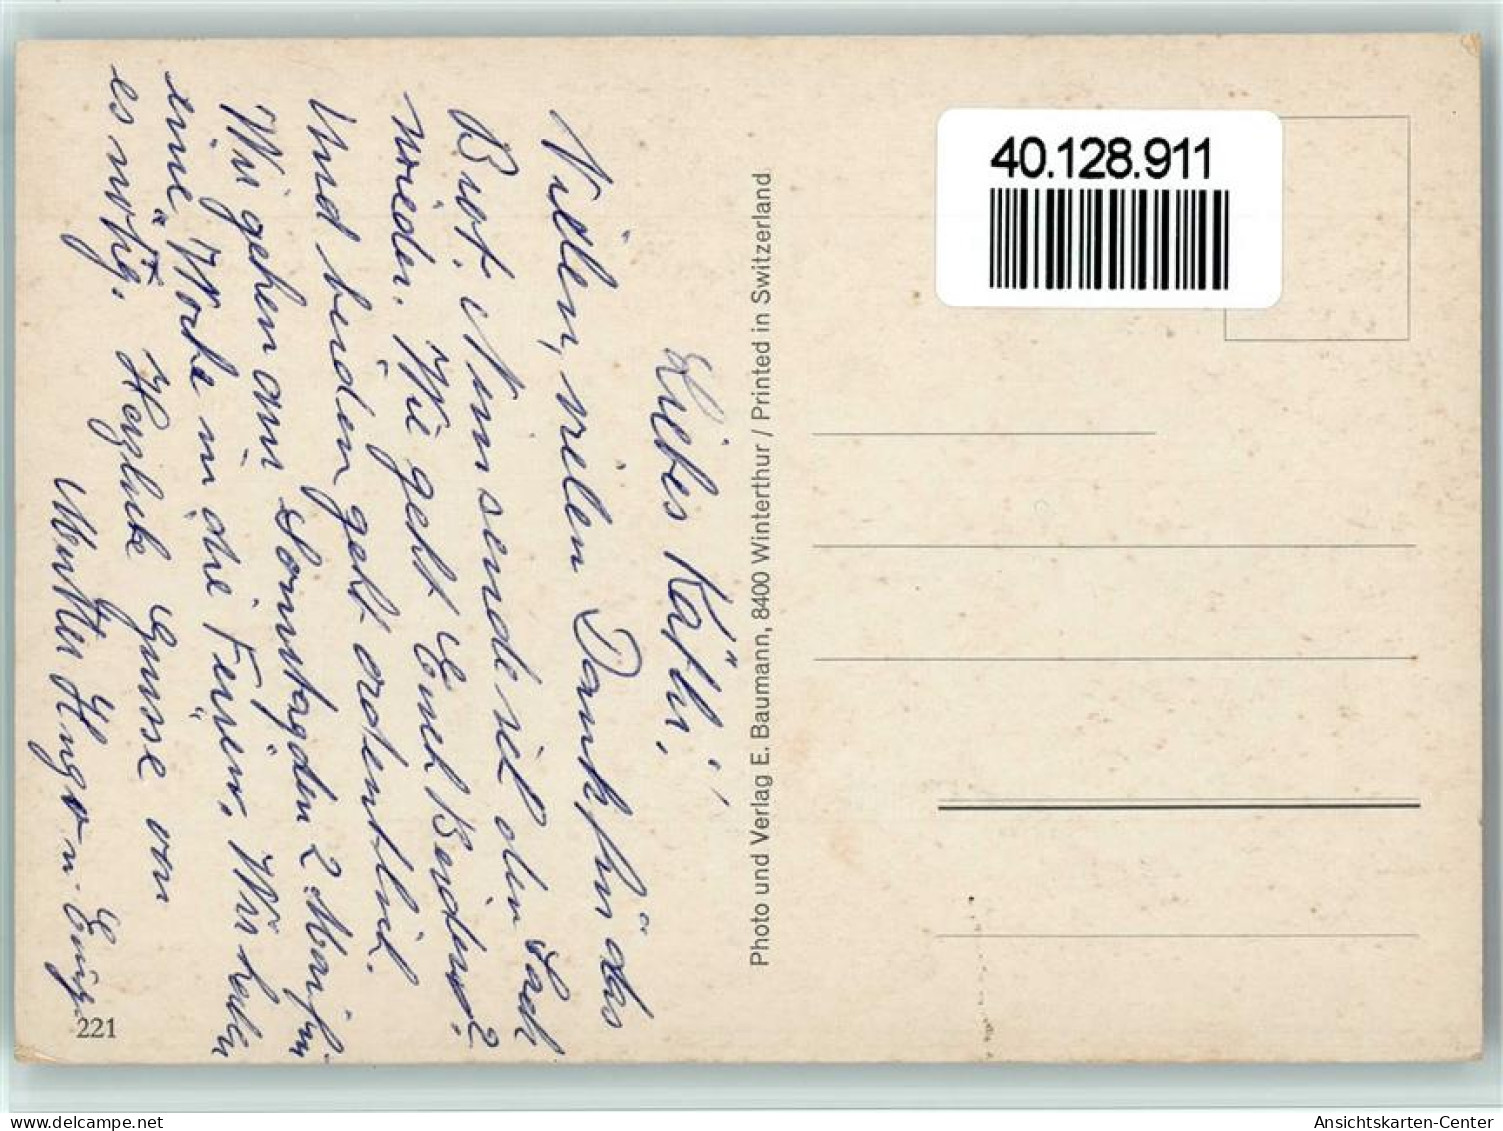 Liebes Käthi!
Vielen, vielen Dank für das
Brot. Nun sende ich den Sack
wieder. Wie geht Euch Beiden?
Uns beiden geht ordentlich.
Wir gehen am Sonntag den 2 Mai für
eine Woche in die Ferien. Wir haben
es nötig. Herzliche Grüsse von
Mutter Hug
Photo und Verlag E. Baumann, 8400 Winterthur / Printed in Switzerland
40.128.911
221
delcampe.net
Ansichtskarten-Center